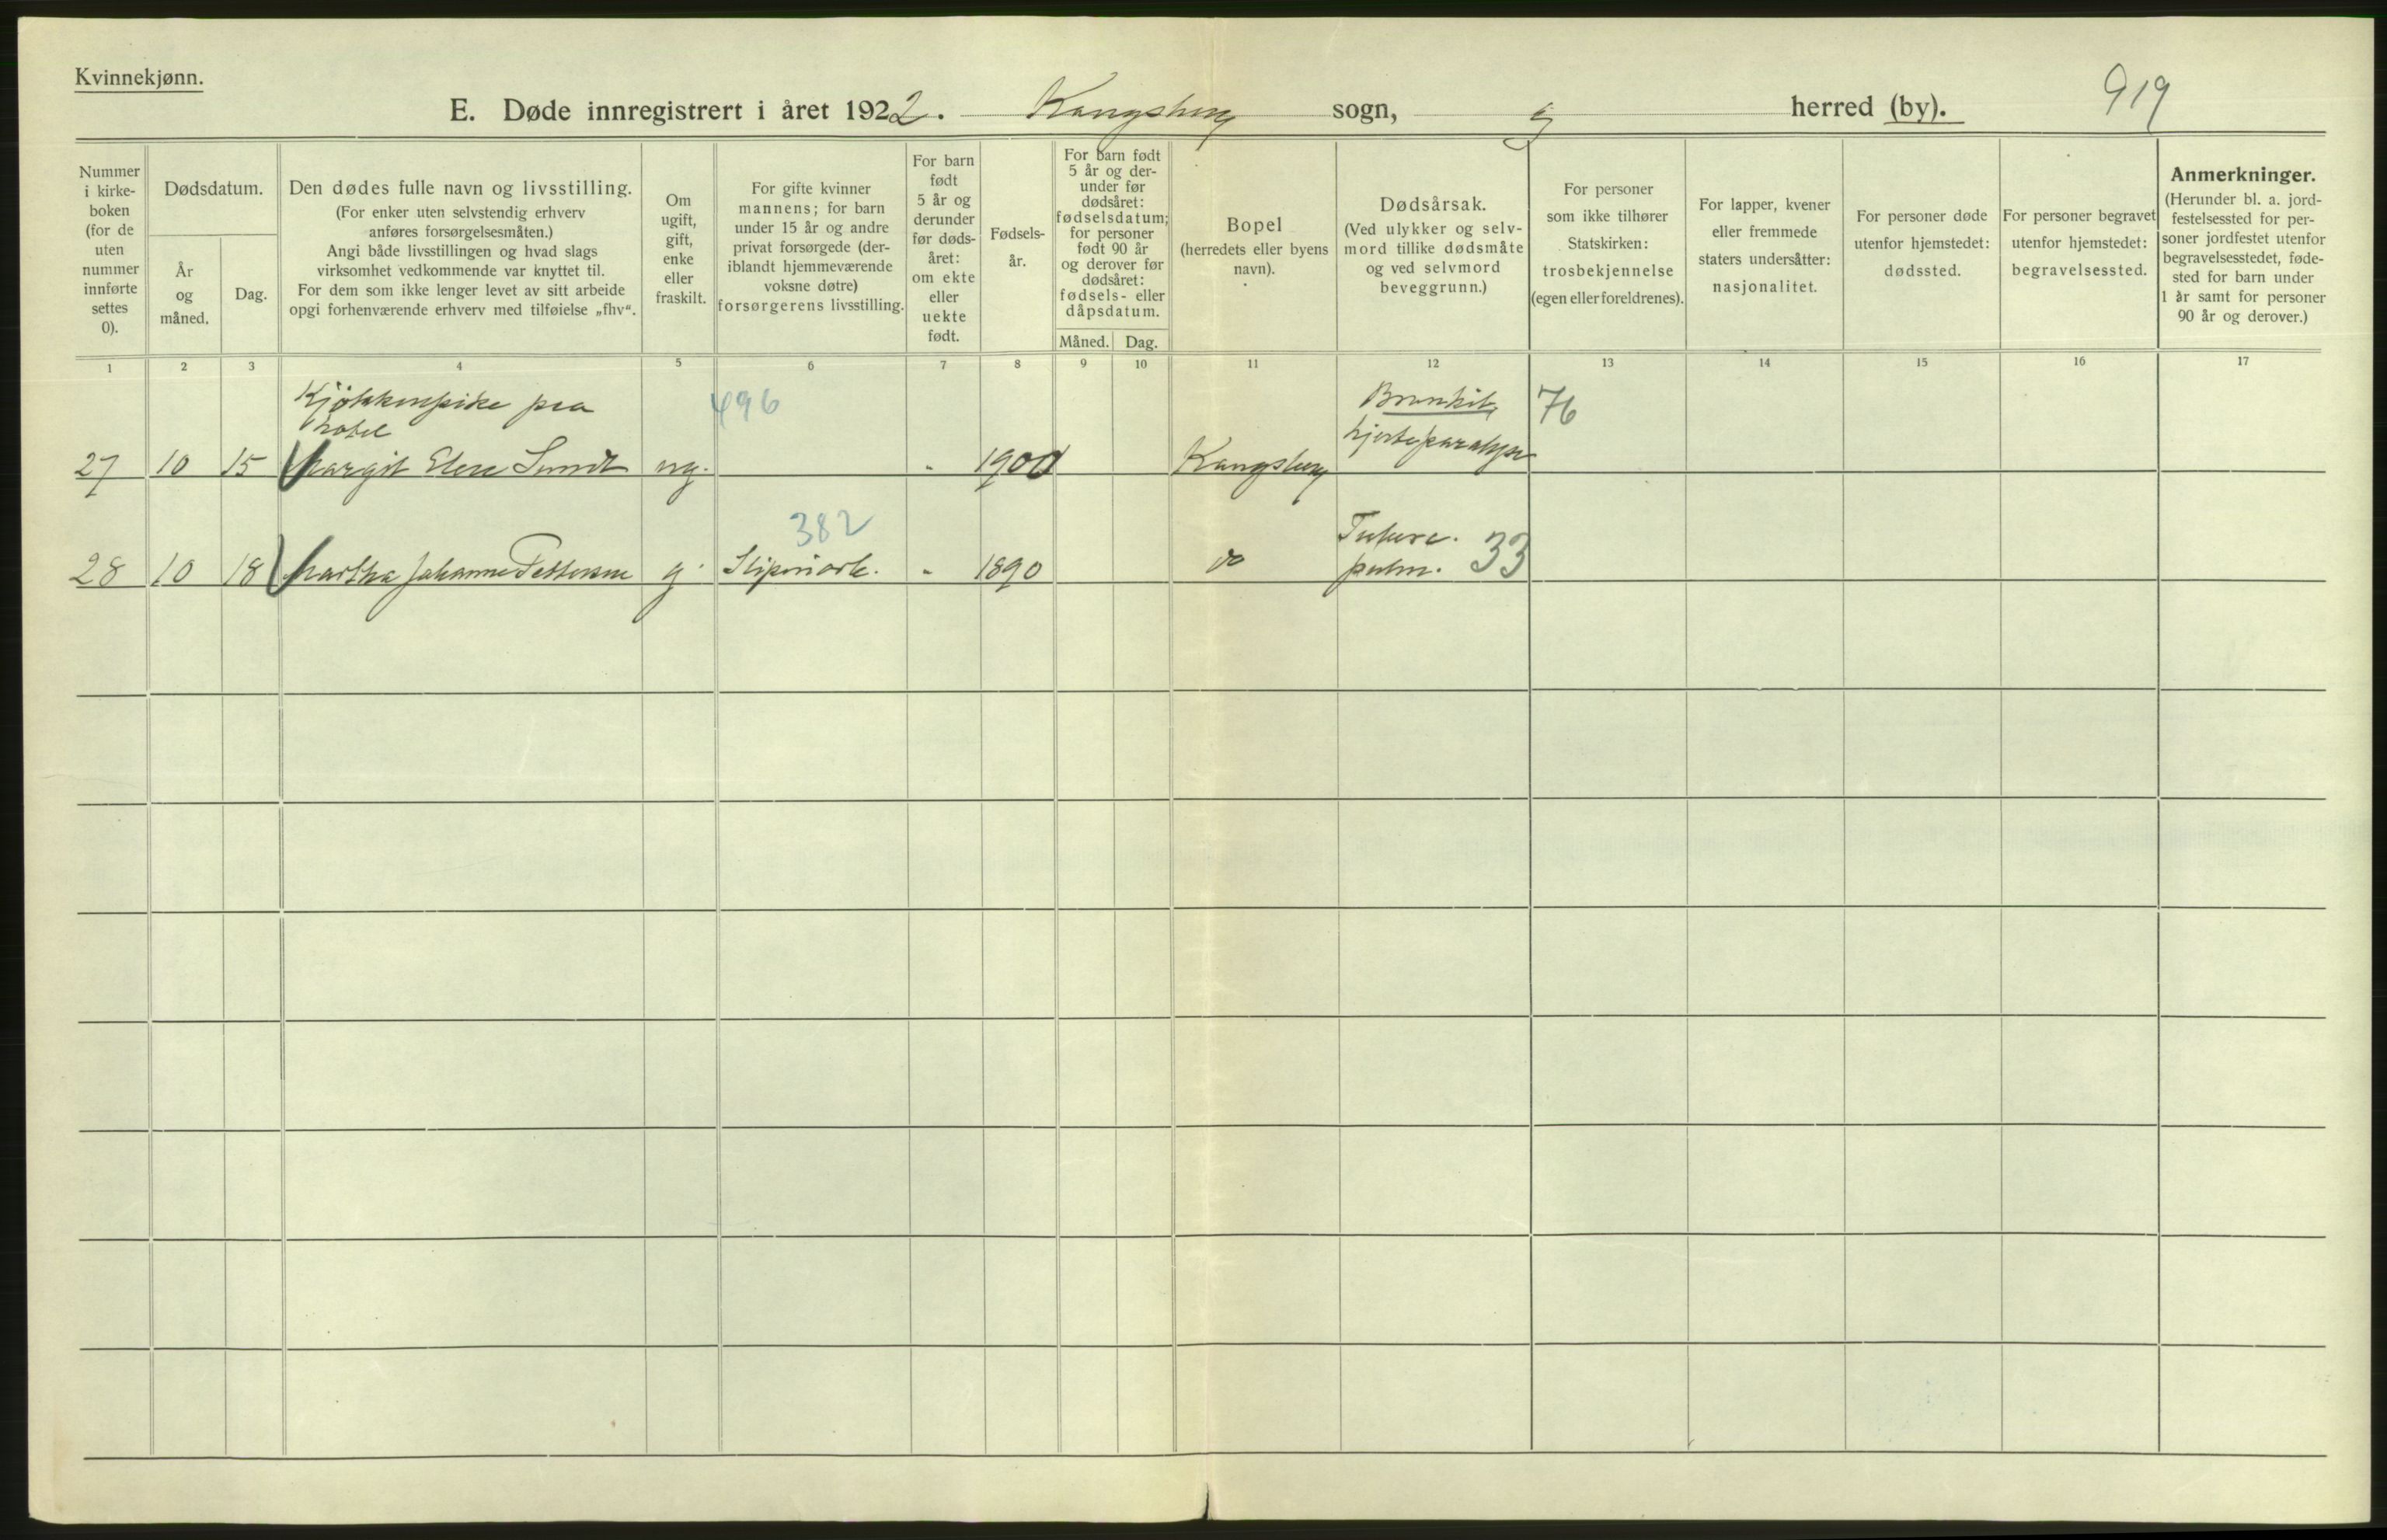 Kvinnekjønn.
E. Døde innregistrert i året 1922. Kongsberg sogn, herred (by). 919
Nummer
i kirke-
boken
(for de
uten
nummer
innførte
settes
0).
Dødsdatum.
År
og
måned.
Dag.
Den dødes fulle navn og livsstilling.
(For enker uten selvstendig erhverv
anføres forsørgelsesmåten.)
Angi både livsstillingen og hvad slags
virksomhet vedkommende var knyttet til.
For dem som ikke lenger levet av sitt arbeide
opgi forhenværende erhverv med tilføielse „fhv“.
Om
ugift,
gift,
enke
eller
fraskilt.
For gifte kvinner
mannens; for barn
under 15 år og andre
privat forsørgede (der-
iblandt hjemmeværende
voksne døtre)
forsørgerens livsstilling.
For barn
født
5 år og
derunder
før døds-
året:
om ekte
eller
uekte
født.
Fødsels-
år.
For barn født
5 år og der-
under før
dødsåret:
fødselsdatum;
for personer
født 90 år
og derover før
dødsåret:
fødsels- eller
dåpsdatum.
Måned. Dag.
Bopel
(herredets eller byens
navn).
Dødsårsak.
(Ved ulykker og selv-
mord tillike dødsmåte
og ved selvmord
beveggrunn.)
For personer
som ikke tilhører
Statskirken:
trosbekjennelse
(egen eller foreldrenes).
For lapper, kvener
eller fremmede
staters undersåtter:
nasjonalitet.
For personer døde
utenfor hjemstedet:
dødssted.
For personer begravet
utenfor hjemstedet:
begravelsessted.
Anmerkninger.
(Herunder bl. a. jord-
festelsessted for per-
soner jordfestet utenfor
begravelsesstedet, føde-
sted for barn under
1 år samt for personer
90 år og derover.)
1 2 3 4 5 6 7 8 9 10 11 12 13 14 15 16 17
Kjøkkenpike paa 496 Bronkit, 76
hotel hjerteparalyse
27 10 15 Margit Elene Sundt ug. " 1900 Kongsberg
382 Tuberc.
28 10 18 Martha Johanne Pettersen g. Sliperiarb. " 1890 do pulm. 33